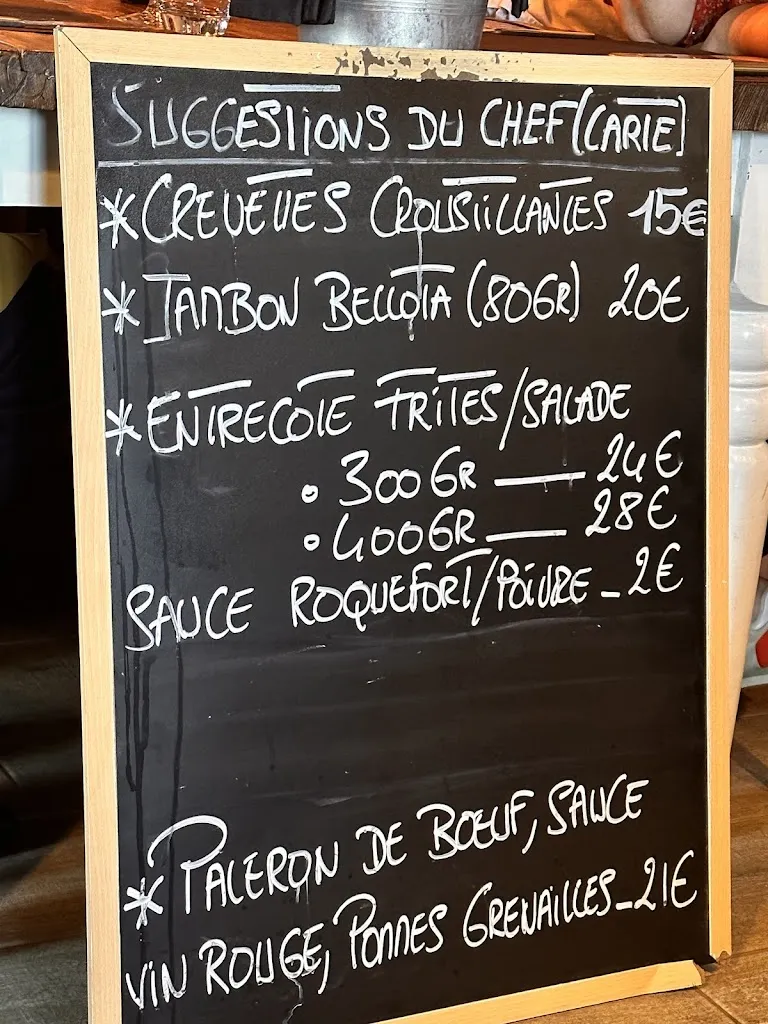 SUGGESTIONS DU CHEF (CARTE)
* CREVETTES CROUSTILLANTES 15€
* JAMBON BELLOTA (80GR) 20€
* ENTRECOTE FRITES/SALADE
• 300GR — 24€
• 400GR — 28€
SAUCE ROQUEFORT/POIVRE - 2€
* PALERON DE BŒUF, SAUCE
VIN ROUGE, POMMES GRENAILLES - 21€